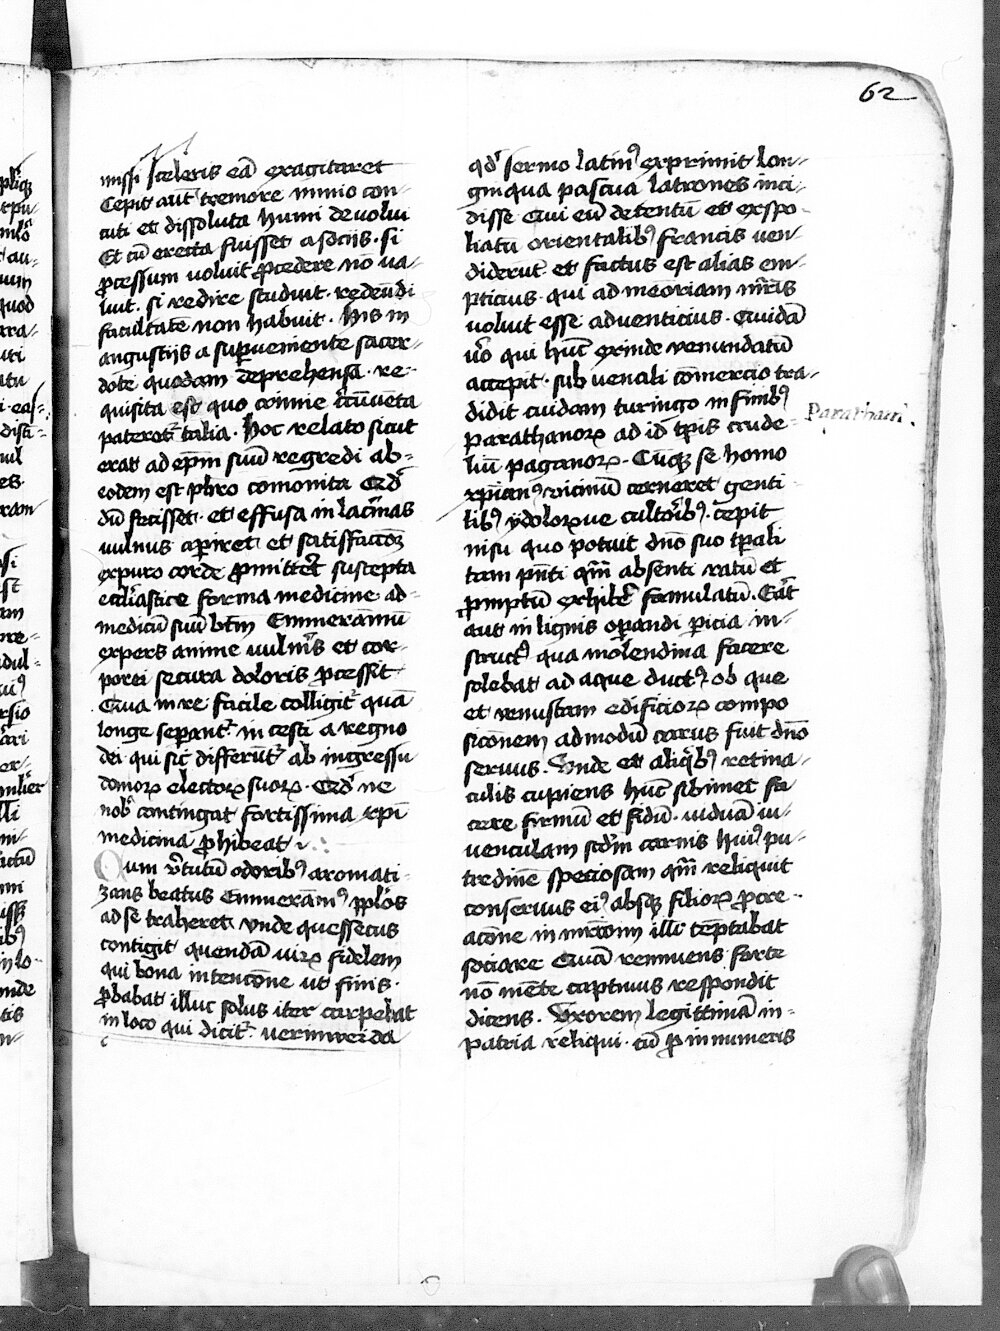 62
missi sceleris eā exagitaret
Cepit aut̄ tremore nimio con-
cuti et dissoluta humi devolui
Et cū erecta fuisset a sociis · si
ꝓcessum voluit ꝓcedere nō va-
luit · si redire studuit · redeūdi
facultatē non habuit · His in
angustijs a supueniente sacer-
dote quodam dep̄rehensa · re-
quisita est quo crimine
pateret᷑ talia · Hoc relato sicut
erat ad ep̄m suū regredi ab-
eodem est pb̄ro comonita Qd̄
dū fecisset · et effusa in lac̄mas
vulnus apiret et satisfaccōꝫ
ex puro corde ꝓmittet᷑ suscepta
eccl̄iastice forma medicine ad-
medicū suū btm̄ Emmerāmū
expers anime vuln̄is et cor-
porei secura doloris ꝓcessit
Qua in re facile colligit᷑ quā
longe sepant᷑ incesti a regno
dei qui sic differūt᷑ ab ingressu
domoꝝ electoꝝ suoꝝ · Qd̄ ne
nob᷒ contingat fortissima xp̄i
medicina ꝓhibeat
Qum v̄tutū odorib᷒ aromati-
zans beatus Emmerām᷒ pp̄los
ad se traheret vnde quessecus
contigit quendā viꝝ fidelem
qui bona intencōne ut finis ·
ꝓbabat illuc solus iter carpebat
in loco qui dicit᷑ verinweida
qd̄ sermo latin᷒ exprimit lon-
ginqua pascua latrones inci-
disse Qui eū detentū et exspo-
liatū orientalib᷒ francis ven-
diderūt · et factus est alias em-
pticius · qui ad meoriam mr̄is
voluit esse adventicius · Cuidā
v̄o qui hūc exinde venundatū
accepit · sub venali cōmercio tra-
didit cuidam turingo in finib᷒
parathanoꝝ ad id tp̄is crude-
liū paganoꝝ · Cūqꝫ se homo
xp̄ian᷒ vicinū cerneret genti-
lib᷒ ydoloꝝve cultorib᷒ · cepit
nisu quo potuit dn̄o suo tp̄ali
tam pn̄ti qm̄ absenti ratū et
ꝓmptū exhibe᷑ famulatū · Eāt
aut in lignis opandi picia in-
struct᷒ qua molendina facere
solebat ad aque duct᷒ ob que
et venustam edificioꝝ compo
sicōnem admodū carus fuit dn̄o
servus · Vnde et aliqb᷒ retina-
culis cupiens hūc sibimet fa
cere firmū et fidū · viduā iu-
venculam scd̄m carnis hui᷒ pu-
tredinē speciosam qm̄ reliquit
conservus ei᷒ absqꝫ filioꝝ ꝓcre-
acōne in mr̄imonium illi tēptabat
sociare Quā rennuens forte
nō mēte captivus respondit
dicens · Vxorem legittimā in-
patria reliqui · cū ꝓ innumeris